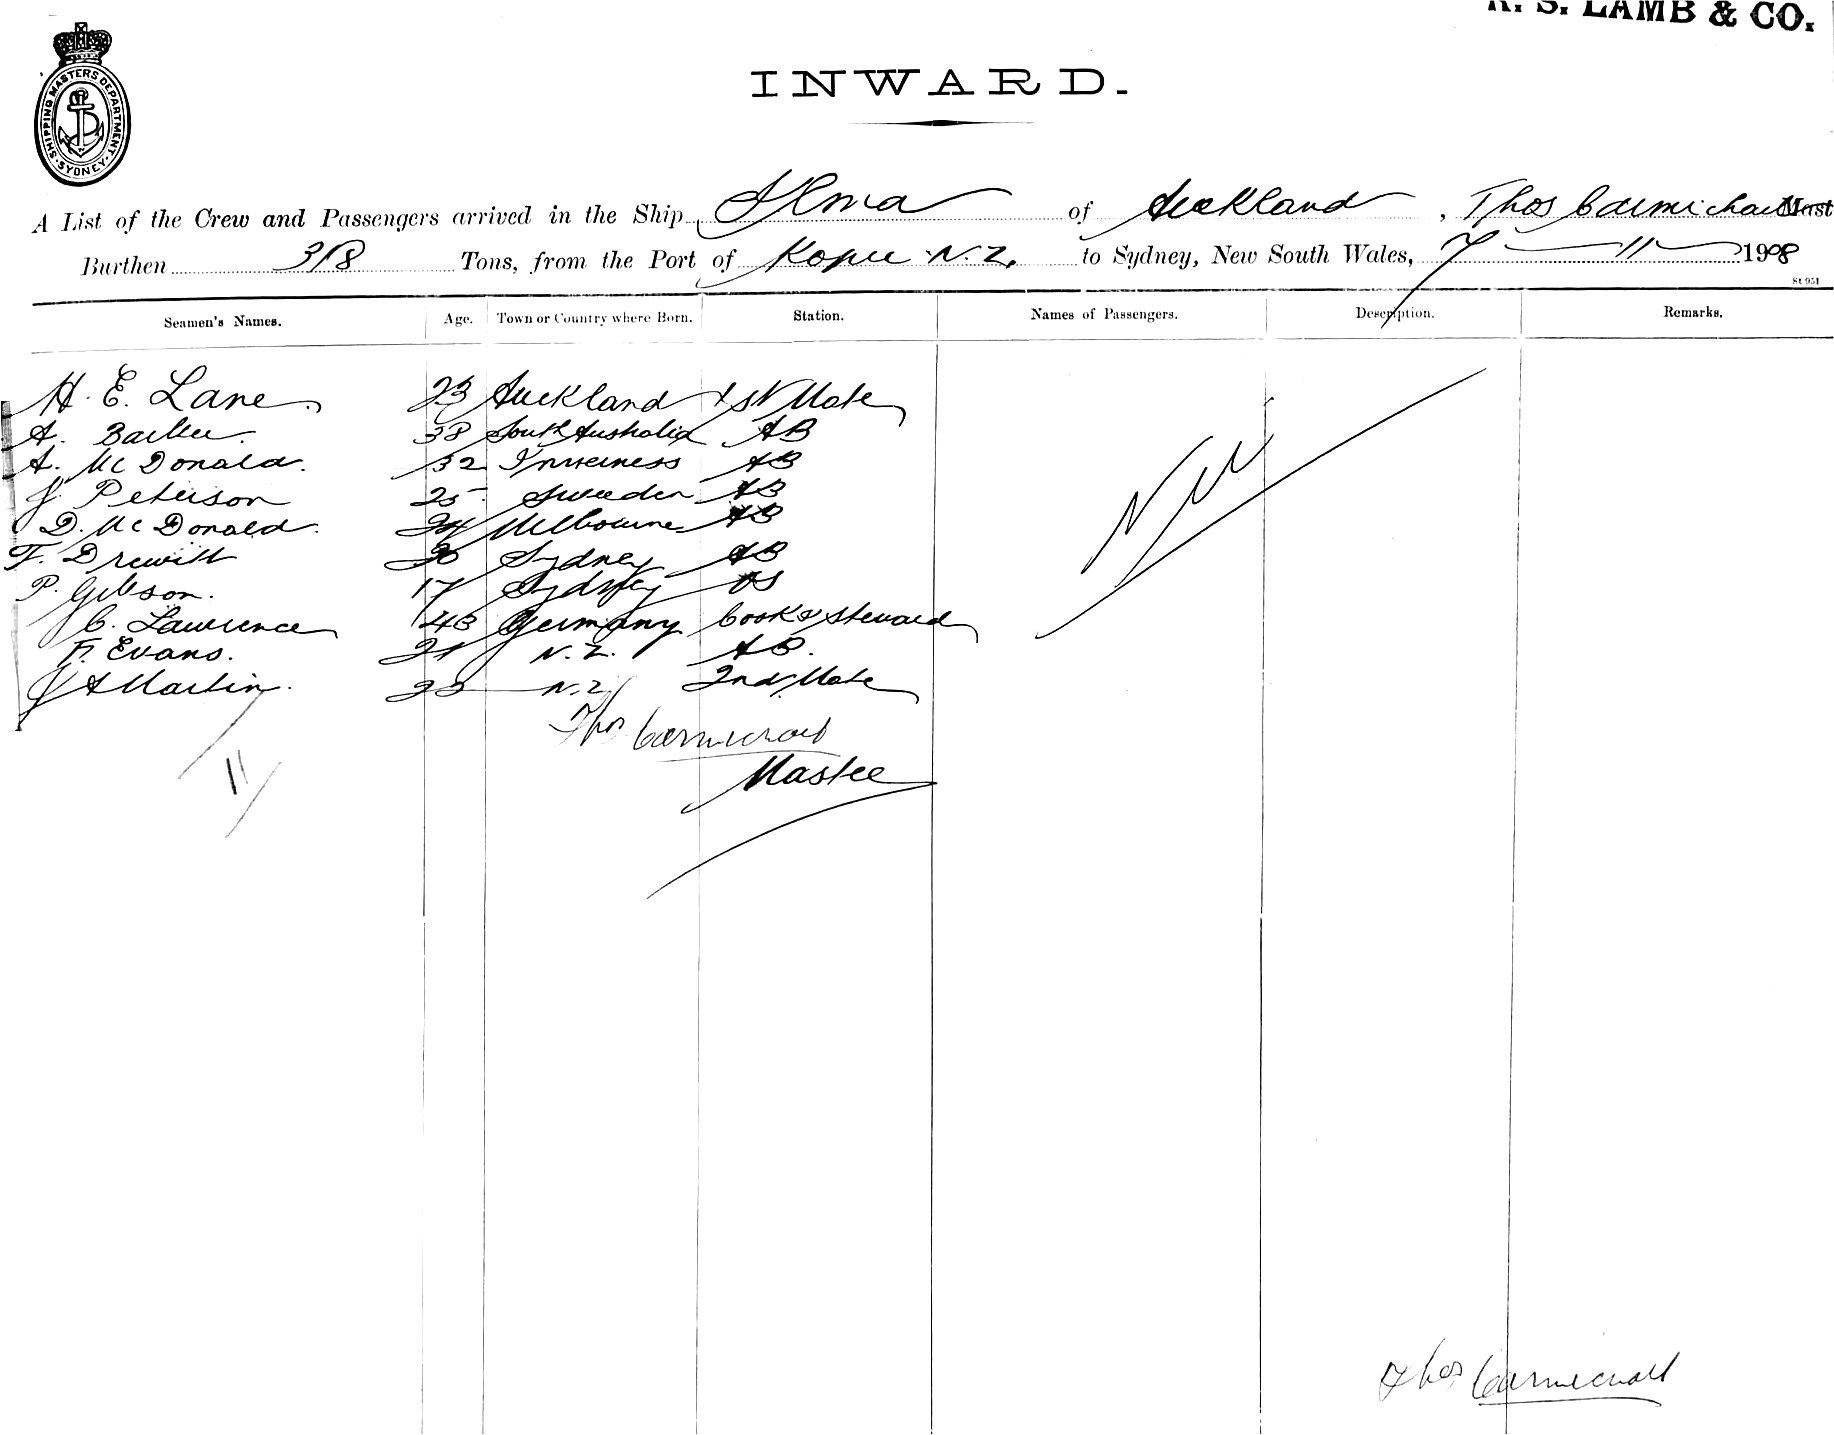 R. S. LAMB & CO.
SHIPPING MASTERS DEPARTMENT. SYDNEY
INWARD.
A List of the Crew and Passengers arrived in the Ship Ilma of Auckland, Thos Carmichael Mast
Burthen 318 Tons, from the Port of Kopu N.Z. to Sydney, New South Wales, 7 11 1908
St 951
Seamen's Names. Age. Town or Country where Born. Station. Names of Passengers. Description. Remarks.
H. E. Lane 23 Auckland 1st Mate
A. 38 South Australia AB
A. McDonald. 32 Inverness AB
J Peterson 25 Sweden AB
D. McDonald. 24 Melbourne AB
F. Drewitt Sydney AB
P. Gibson. 17 Sydney OS
C. Lawrence Germany Cook & Steward
F. Evans. 21 N.Z. AB.
J A Martin. N.Z. 2nd Mate
Nil
Thos Carmichael
Master
11
Thos Carmichael